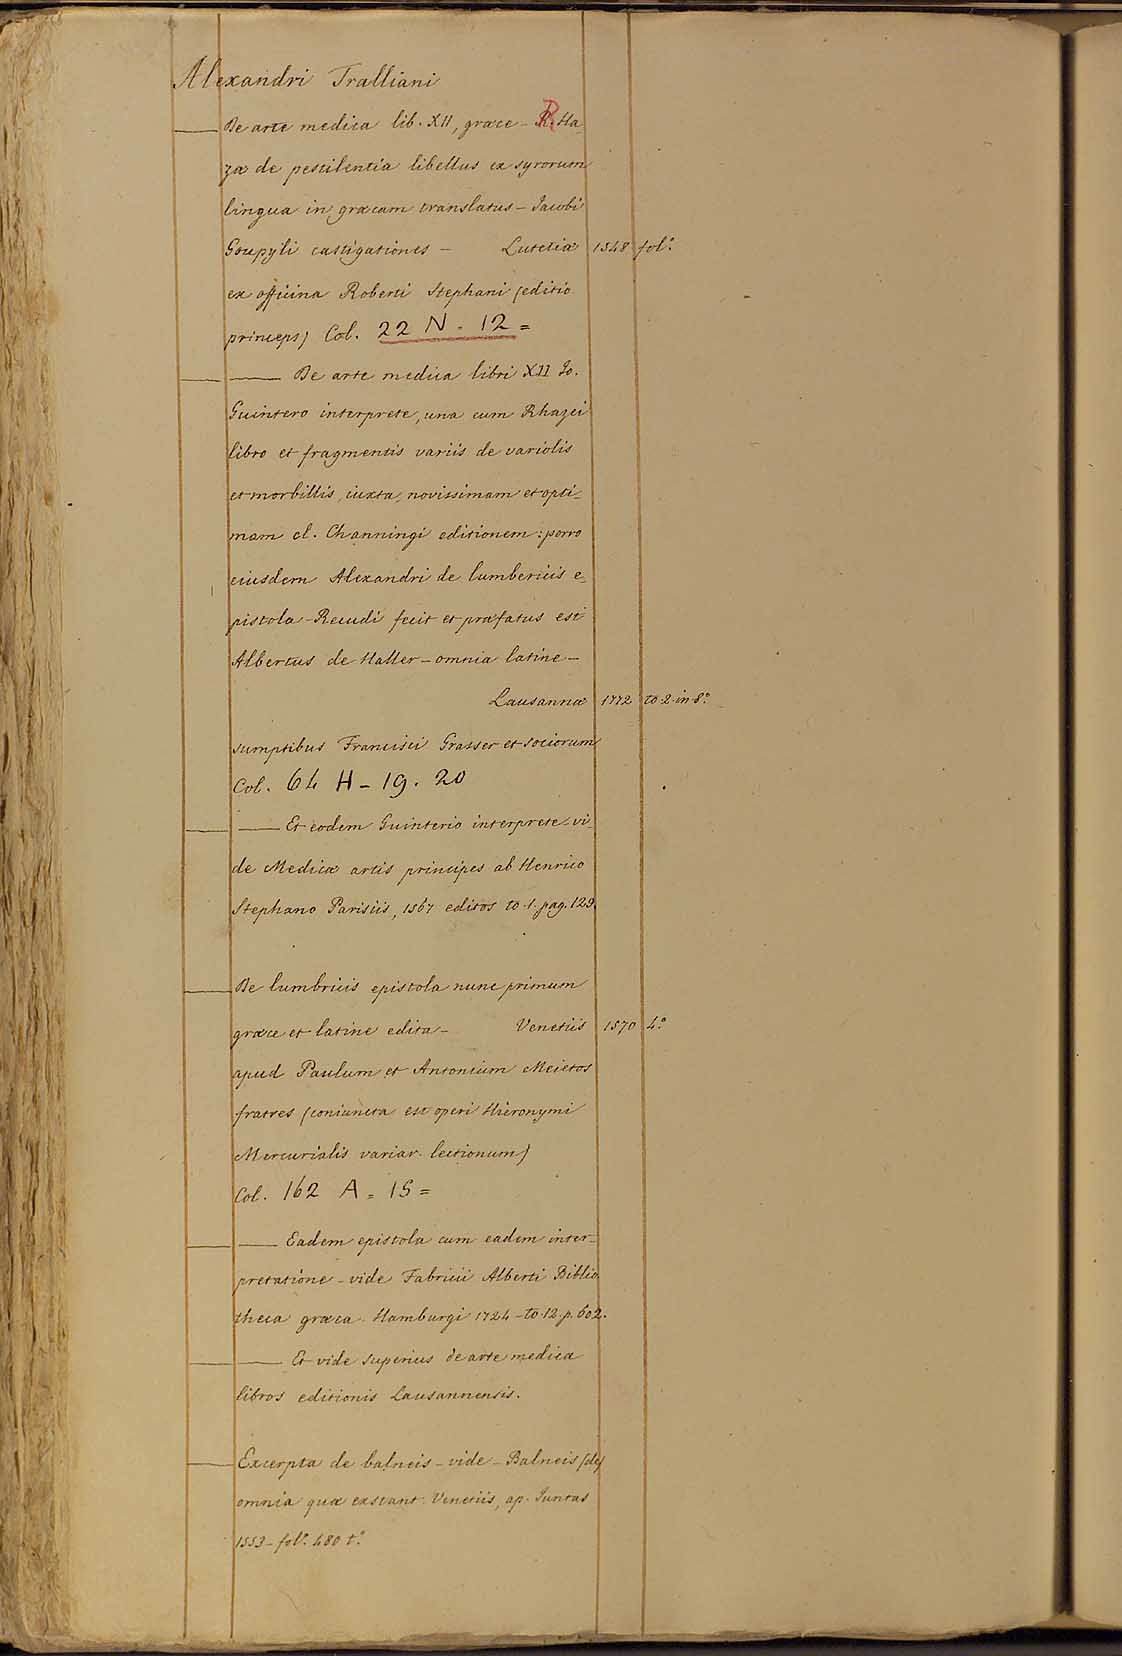 Alexandri Tralliani
De arte medica lib. XII, græce - R. Ha_
zæ de pestilentia libellus ex syrorum
lingua in græcam translatus - Jacobi
Goupyli castigationes - Lutetiæ 1548 fol.º
ex officina Roberti Stephani (editio
princeps) Col. 22 N. 12 =
De arte medica libri XII Jo.
Guintero interprete, una cum Rhazei
libro et fragmentis variis de variolis
et morbillis, iuxta, novissimam et opti_
mam cl. Channingi editionem: porro
eiusdem Alexandri de lumbericis e_
pistola - Recudi fecit et præfatus est
Albertus de Haller - omnia latine -
Lausannæ 1772 to. 2. in 8.º
sumptibus Francisci Grasser et sociorum
Col. 64 H - 19. 20
Et eodem Guinterio interprete - vi_
de Medicæ artis principes ab Henrico
Stephano Parisiis, 1567 editos to. 1. pag. 129.
De lumbricis epistola nunc primum
græce et latine edita - Venetiis 1570 4.º
apud Paulum et Antonium Meietos
fratres (coniuncta est operi Hieronymi
Mercurialis variar. lectionum)
Col. 162 A = 15 =
Eadem epistola cum eadem inter_
pretatione - vide Fabricii Alberti Biblio_
theca græca. Hamburgi 1724 - to. 12. p. 602.
Et vide superius de arte medica
libros editionis Lausannensis.
Excerpta de balneis - vide - Balneis (de)
omnia quæ exstant. Venetiis, ap. Juntas
1553 - fol.º 480 t.º